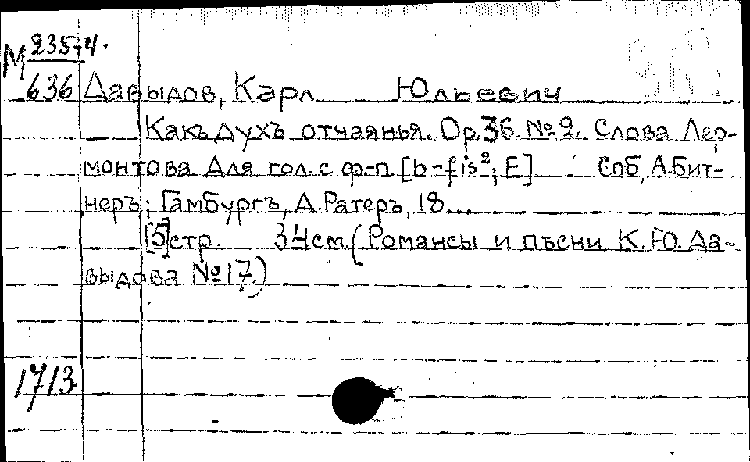 М 235-4.
636 Давыдов, Карл Юльевич
Какъ духъ отчаянья. Op. 36. № 2. Слова Лер-
монтова Для гол. с ф-п. [b-fis²; E] Спб, А. Бит-
неръ; Гамбургъ, А. Ратеръ, 18...
[5] стр. 34 см. (Романсы и пѣсни К. Ю. Да-
выдова № 17.)
1713